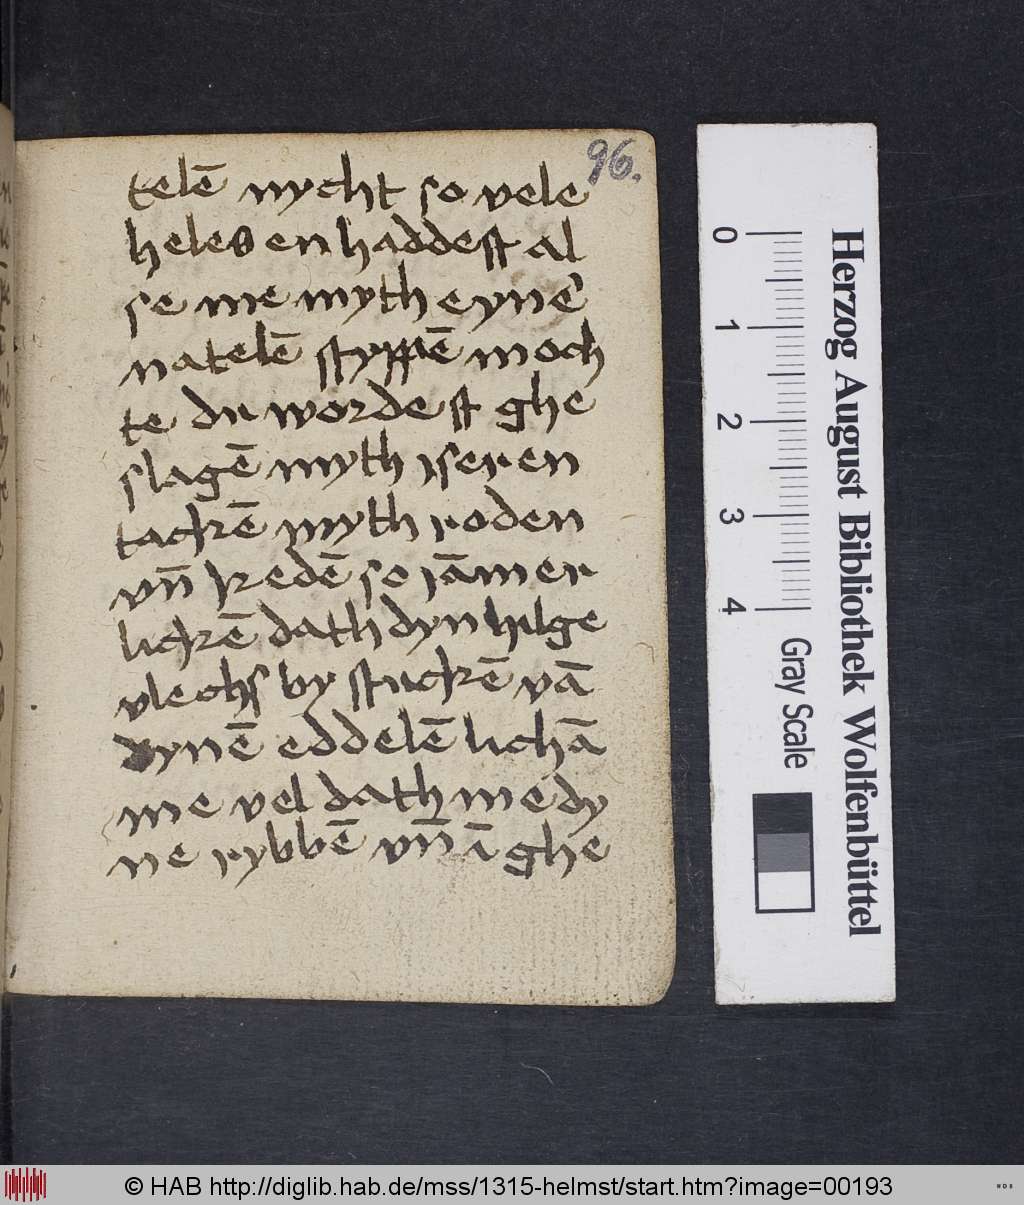 96.
telē nycht so vele
heles en haddest al
se me myth eynē
natelē styppē moch
te du wordest ghe
slagē myth iseren
tackē myth roden
vn̄ kedē so iāmer
lickē dath dyn hilge
vlechs by stuckē vā
dynē eddelē lichā
me vel dath me dy
ne rybbē vn̄ ī ghe
0
1
2
3
4
Gray Scale
Herzog August Bibliothek Wolfenbüttel
© HAB http://diglib.hab.de/mss/1315-helmst/start.htm?image=00193